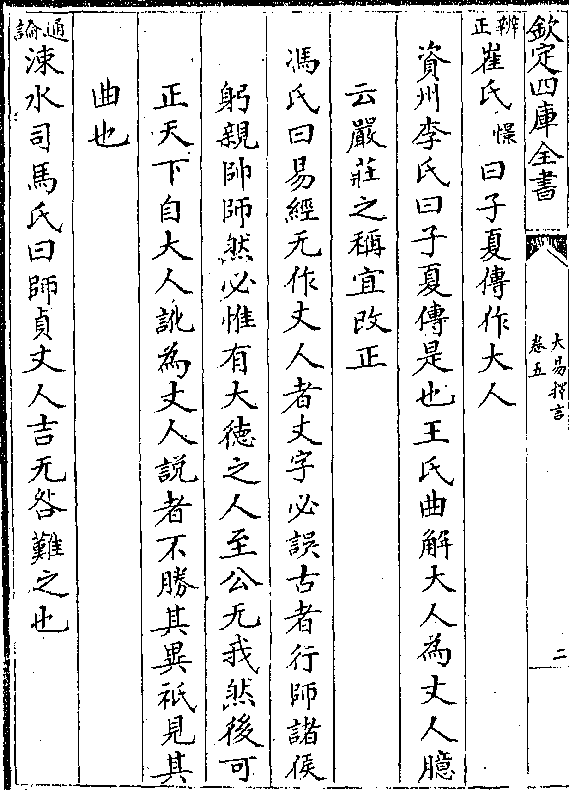 欽定四庫全書
大易擇言
卷五
二
辨正
崔氏憬曰子夏傳作大人
資州李氏曰子夏傳是也王氏曲解大人為丈人臆
云嚴莊之稱宜改正
馮氏曰易經无作丈人者丈字必誤古者行師諸侯
躬親帥師然必惟有大徳之人至公无我然後可
正天下自大人訛為丈人說者不勝其異祇見其
曲也
通論
涑水司馬氏曰師貞丈人吉无咎難之也